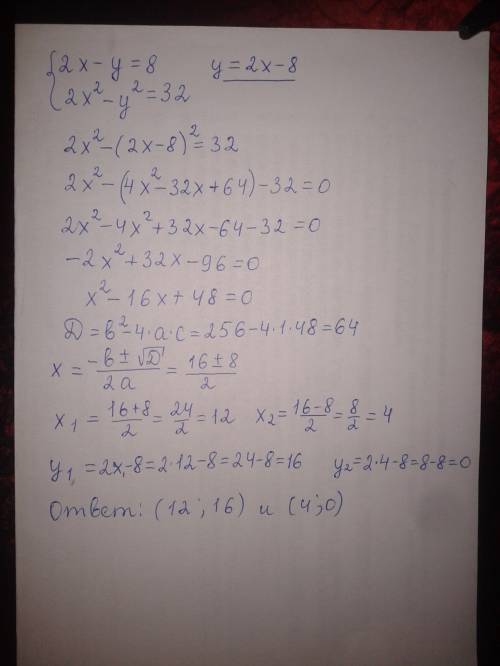 {2x-y=8 y=2x-8
2x²-y²=32
2x²-(2x-8)²=32
2x²-(4x²-32x+64)-32=0
2x²-4x²+32x-64-32=0
-2x²+32x-96=0
x²-16x+48=0
D=b²-4·a·c=256-4·1·48=64
x=(-b±√D)/2a=(16±8)/2
x₁=(16+8)/2=24/2=12 x₂=(16-8)/2=8/2=4
y₁=2x₁-8=2·12-8=24-8=16 y₂=2·4-8=8-8=0
Ответ: (12;16) и (4;0)